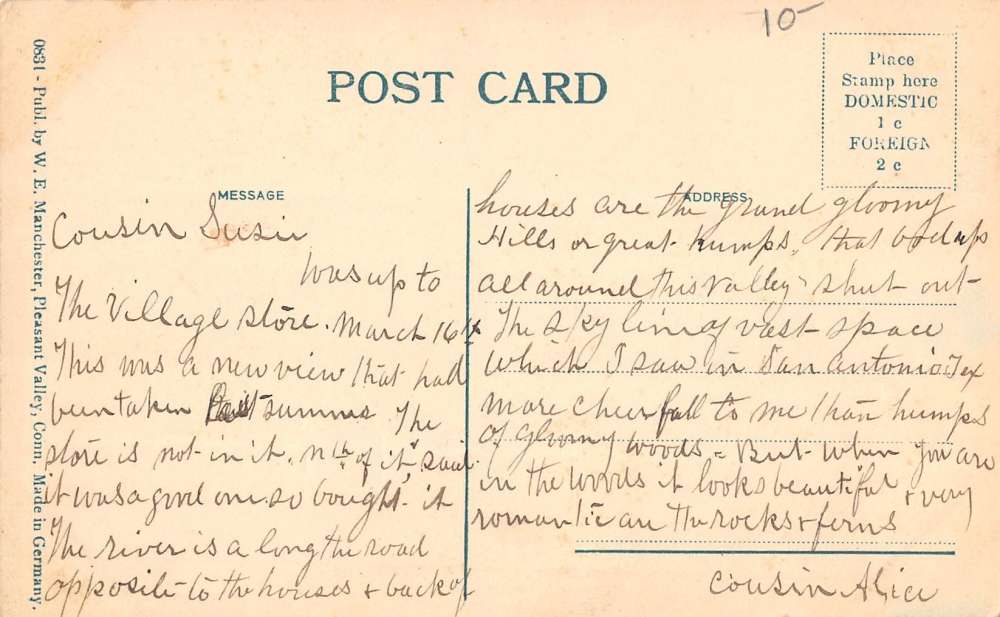 10-
POST CARD
Place
Stamp here
DOMESTIC
1 c
FOREIGN
2 c
0831 - Publ. by W. E. Manchester, Pleasant Valley, Conn. Made in Germany.
MESSAGE
Cousin Susie
Was up to
The Village store. March 16th
This was a new view that had
been taken Last summer. The
store is not in it. N th of it, said
it was a good one so bought it
The river is along the road
opposite to the houses + back of
ADDRESS
houses are the grand gloomy
Hills or great humps, that
all around this valley shut out
The sky line of vast space
which I saw in San Antonio Tex
more cheerfull to me than humps
of gloomy woods = But when you are
in the woods it looks beautiful + very
romantic are the rocks + ferns
Cousin Alice